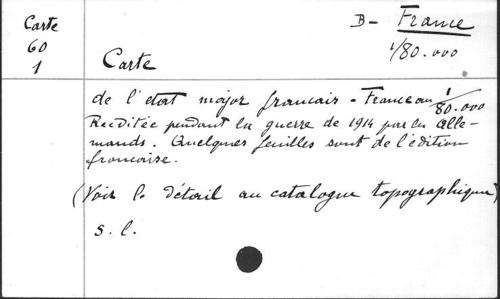 Carte
60
1
B - France
1/80.000
Carte
de l'etat major francais - France au 1/80.000
Reeditée pendant la guerre de 1914 par les Alle-
mands. Quelques feuilles sont de l'édition
francaise.
(Voir le détail au catalogue topographique)
s. l.